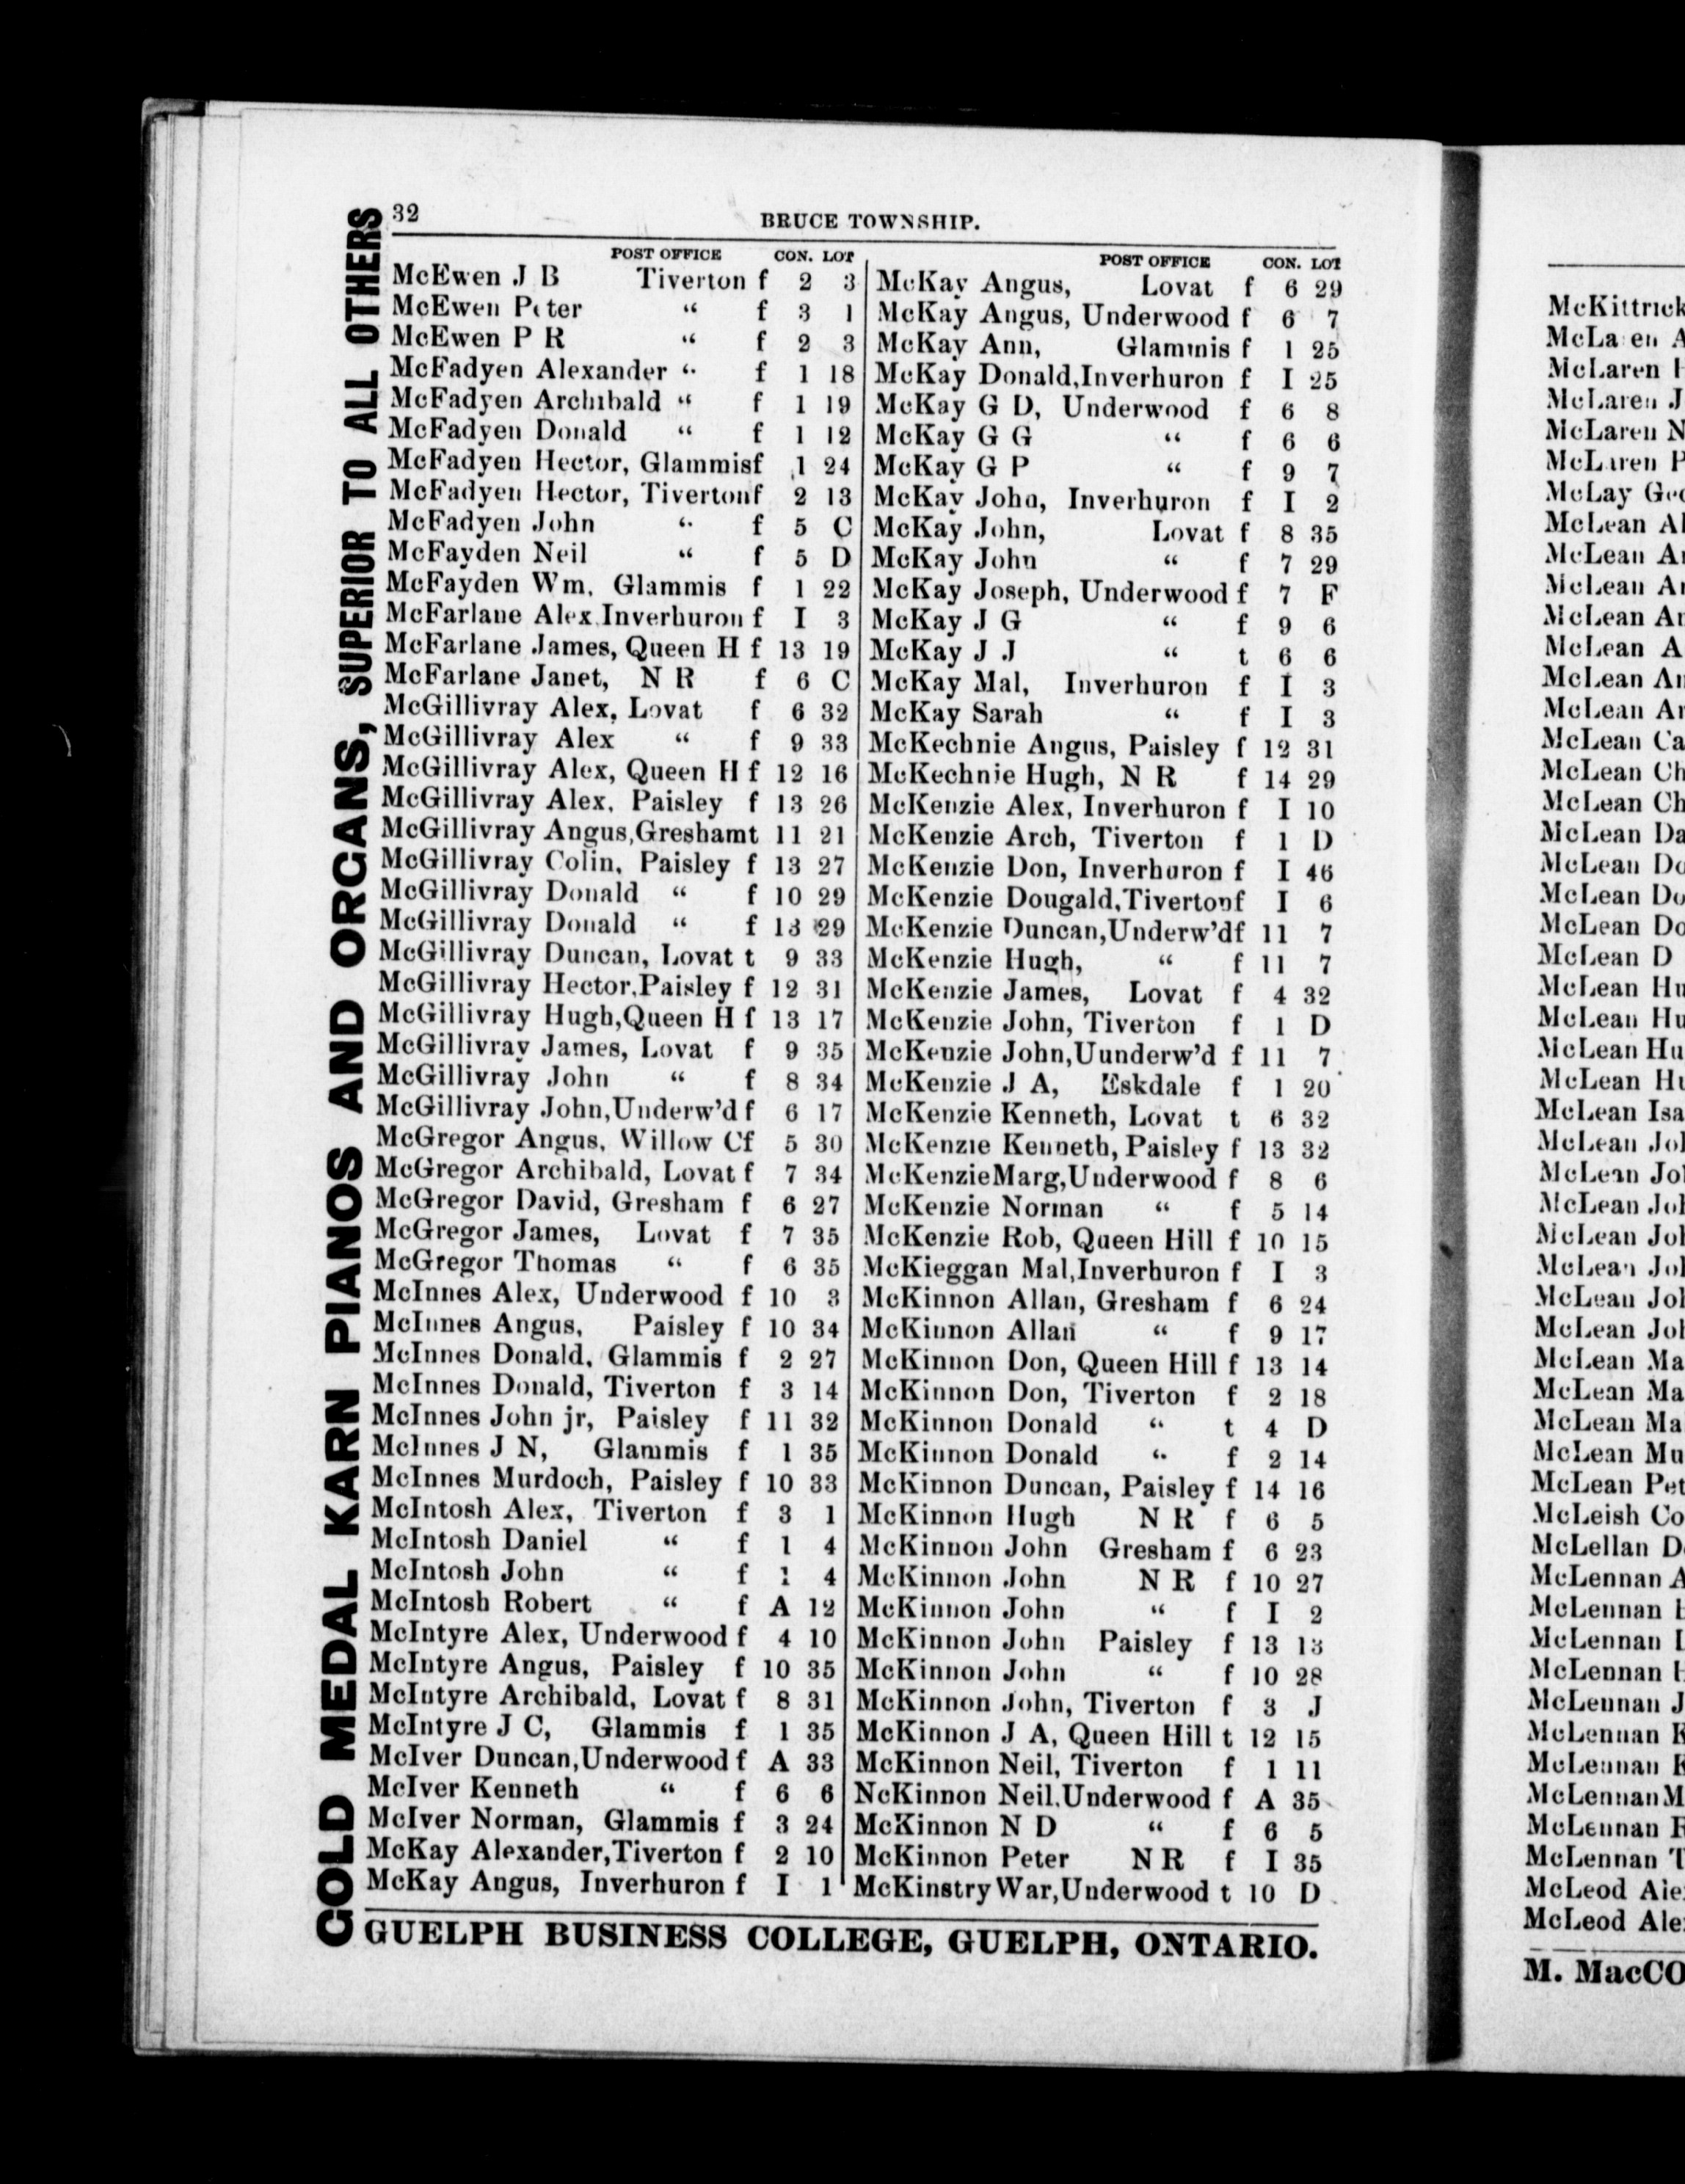 32
BRUCE TOWNSHIP.
GOLD MEDAL KARN PIANOS AND ORGANS, SUPERIOR TO ALL OTHERS
POST OFFICE CON. LOT
McEwen J B Tiverton f 2 3
McEwen Peter “ f 3 1
McEwen P R “ f 2 3
McFadyen Alexander “ f 1 18
McFadyen Archibald “ f 1 19
McFadyen Donald “ f 1 12
McFadyen Hector, Glammisf 1 24
McFadyen Hector, Tivertonf 2 13
McFadyen John “ f 5 C
McFayden Neil “ f 5 D
McFayden Wm. Glammis f 1 22
McFarlane Alex.Inverhuron f I 3
McFarlane James, Queen H f 13 19
McFarlane Janet, N R f 6 C
McGillivray Alex, Lovat f 6 32
McGillivray Alex “ f 9 33
McGillivray Alex, Queen H f 12 16
McGillivray Alex, Paisley f 13 26
McGillivray Angus,Greshamt 11 21
McGillivray Colin, Paisley f 13 27
McGillivray Donald “ f 10 29
McGillivray Donald “ f 13 29
McGillivray Duncan, Lovat t 9 33
McGillivray Hector,Paisley f 12 31
McGillivray Hugh,Queen H f 13 17
McGillivray James, Lovat f 9 35
McGillivray John “ f 8 34
McGillivray John,Underw’d f 6 17
McGregor Angus, Willow Cf 5 30
McGregor Archibald, Lovat f 7 34
McGregor David, Gresham f 6 27
McGregor James, Lovat f 7 35
McGregor Thomas “ f 6 35
McInnes Alex, Underwood f 10 3
McInnes Angus, Paisley f 10 34
McInnes Donald, Glammis f 2 27
McInnes Donald, Tiverton f 3 14
McInnes John jr, Paisley f 11 32
McInnes J N, Glammis f 1 35
McInnes Murdoch, Paisley f 10 33
McIntosh Alex, Tiverton f 3 1
McIntosh Daniel “ f 1 4
McIntosh John “ f 1 4
McIntosh Robert “ f A 12
McIntyre Alex, Underwood f 4 10
McIntyre Angus, Paisley f 10 35
McIntyre Archibald, Lovat f 8 31
McIntyre J C, Glammis f 1 35
McIver Duncan,Underwood f A 33
McIver Kenneth “ f 6 6
McIver Norman, Glammis f 3 24
McKay Alexander,Tiverton f 2 10
McKay Angus, Inverhuron f I 1
POST OFFICE CON. LOT
McKay Angus, Lovat f 6 29
McKay Angus, Underwood f 6 7
McKay Ann, Glammis f 1 25
McKay Donald,Inverhuron f I 25
McKay G D, Underwood f 6 8
McKay G G “ f 6 6
McKay G P “ f 9 7
McKay John, Inverhuron f I 2
McKay John, Lovat f 8 35
McKay John “ f 7 29
McKay Joseph, Underwood f 7 F
McKay J G “ f 9 6
McKay J J “ t 6 6
McKay Mal, Inverhuron f I 3
McKay Sarah “ f I 3
McKechnie Angus, Paisley f 12 31
McKechnie Hugh, N R f 14 29
McKenzie Alex, Inverhuron f I 10
McKenzie Arch, Tiverton f 1 D
McKenzie Don, Inverhuron f I 46
McKenzie Dougald,Tivertonf I 6
McKenzie Duncan,Underw’df 11 7
McKenzie Hugh, “ f 11 7
McKenzie James, Lovat f 4 32
McKenzie John, Tiverton f 1 D
McKenzie John,Uunderw’d f 11 7
McKenzie J A, Eskdale f 1 20
McKenzie Kenneth, Lovat t 6 32
McKenzie Kenneth, Paisley f 13 32
McKenzieMarg,Underwood f 8 6
McKenzie Norman “ f 5 14
McKenzie Rob, Queen Hill f 10 15
McKieggan Mal,Inverhuron f I 3
McKinnon Allan, Gresham f 6 24
McKinnon Allan “ f 9 17
McKinnon Don, Queen Hill f 13 14
McKinnon Don, Tiverton f 2 18
McKinnon Donald “ t 4 D
McKinnon Donald “ f 2 14
McKinnon Duncan, Paisley f 14 16
McKinnon Hugh N R f 6 5
McKinnon John Gresham f 6 23
McKinnon John N R f 10 27
McKinnon John “ f I 2
McKinnon John Paisley f 13 13
McKinnon John “ f 10 28
McKinnon John, Tiverton f 3 J
McKinnon J A, Queen Hill t 12 15
McKinnon Neil, Tiverton f 1 11
NcKinnon Neil,Underwood f A 35
McKinnon N D “ f 6 5
McKinnon Peter N R f I 35
McKinstry War,Underwood t 10 D
GUELPH BUSINESS COLLEGE, GUELPH, ONTARIO.
McKittrick
McLaren A
McLaren
McLaren J
McLaren N
McLaren
McLay Geo
McLean Al
McLean A
McLean A
McLean A
McLean A
McLean A
McLean A
McLean Ca
McLean Ch
McLean Ch
McLean Da
McLean Do
McLean Do
McLean Do
McLean D
McLean Hu
McLean Hu
McLean Hu
McLean Hu
McLean Isa
McLean Jo
McLean Jo
McLean Jo
McLean Jo
McLean Jo
McLean Jo
McLean Jo
McLean Ma
McLean Ma
McLean Ma
McLean Mu
McLean Pet
McLeish Co
McLellan D
McLennan A
McLennan
McLennan
McLennan
McLennan J
McLennan K
McLennan K
McLennan M
McLennan
McLennan T
McLeod Ale
McLeod Ale
M. MacCO